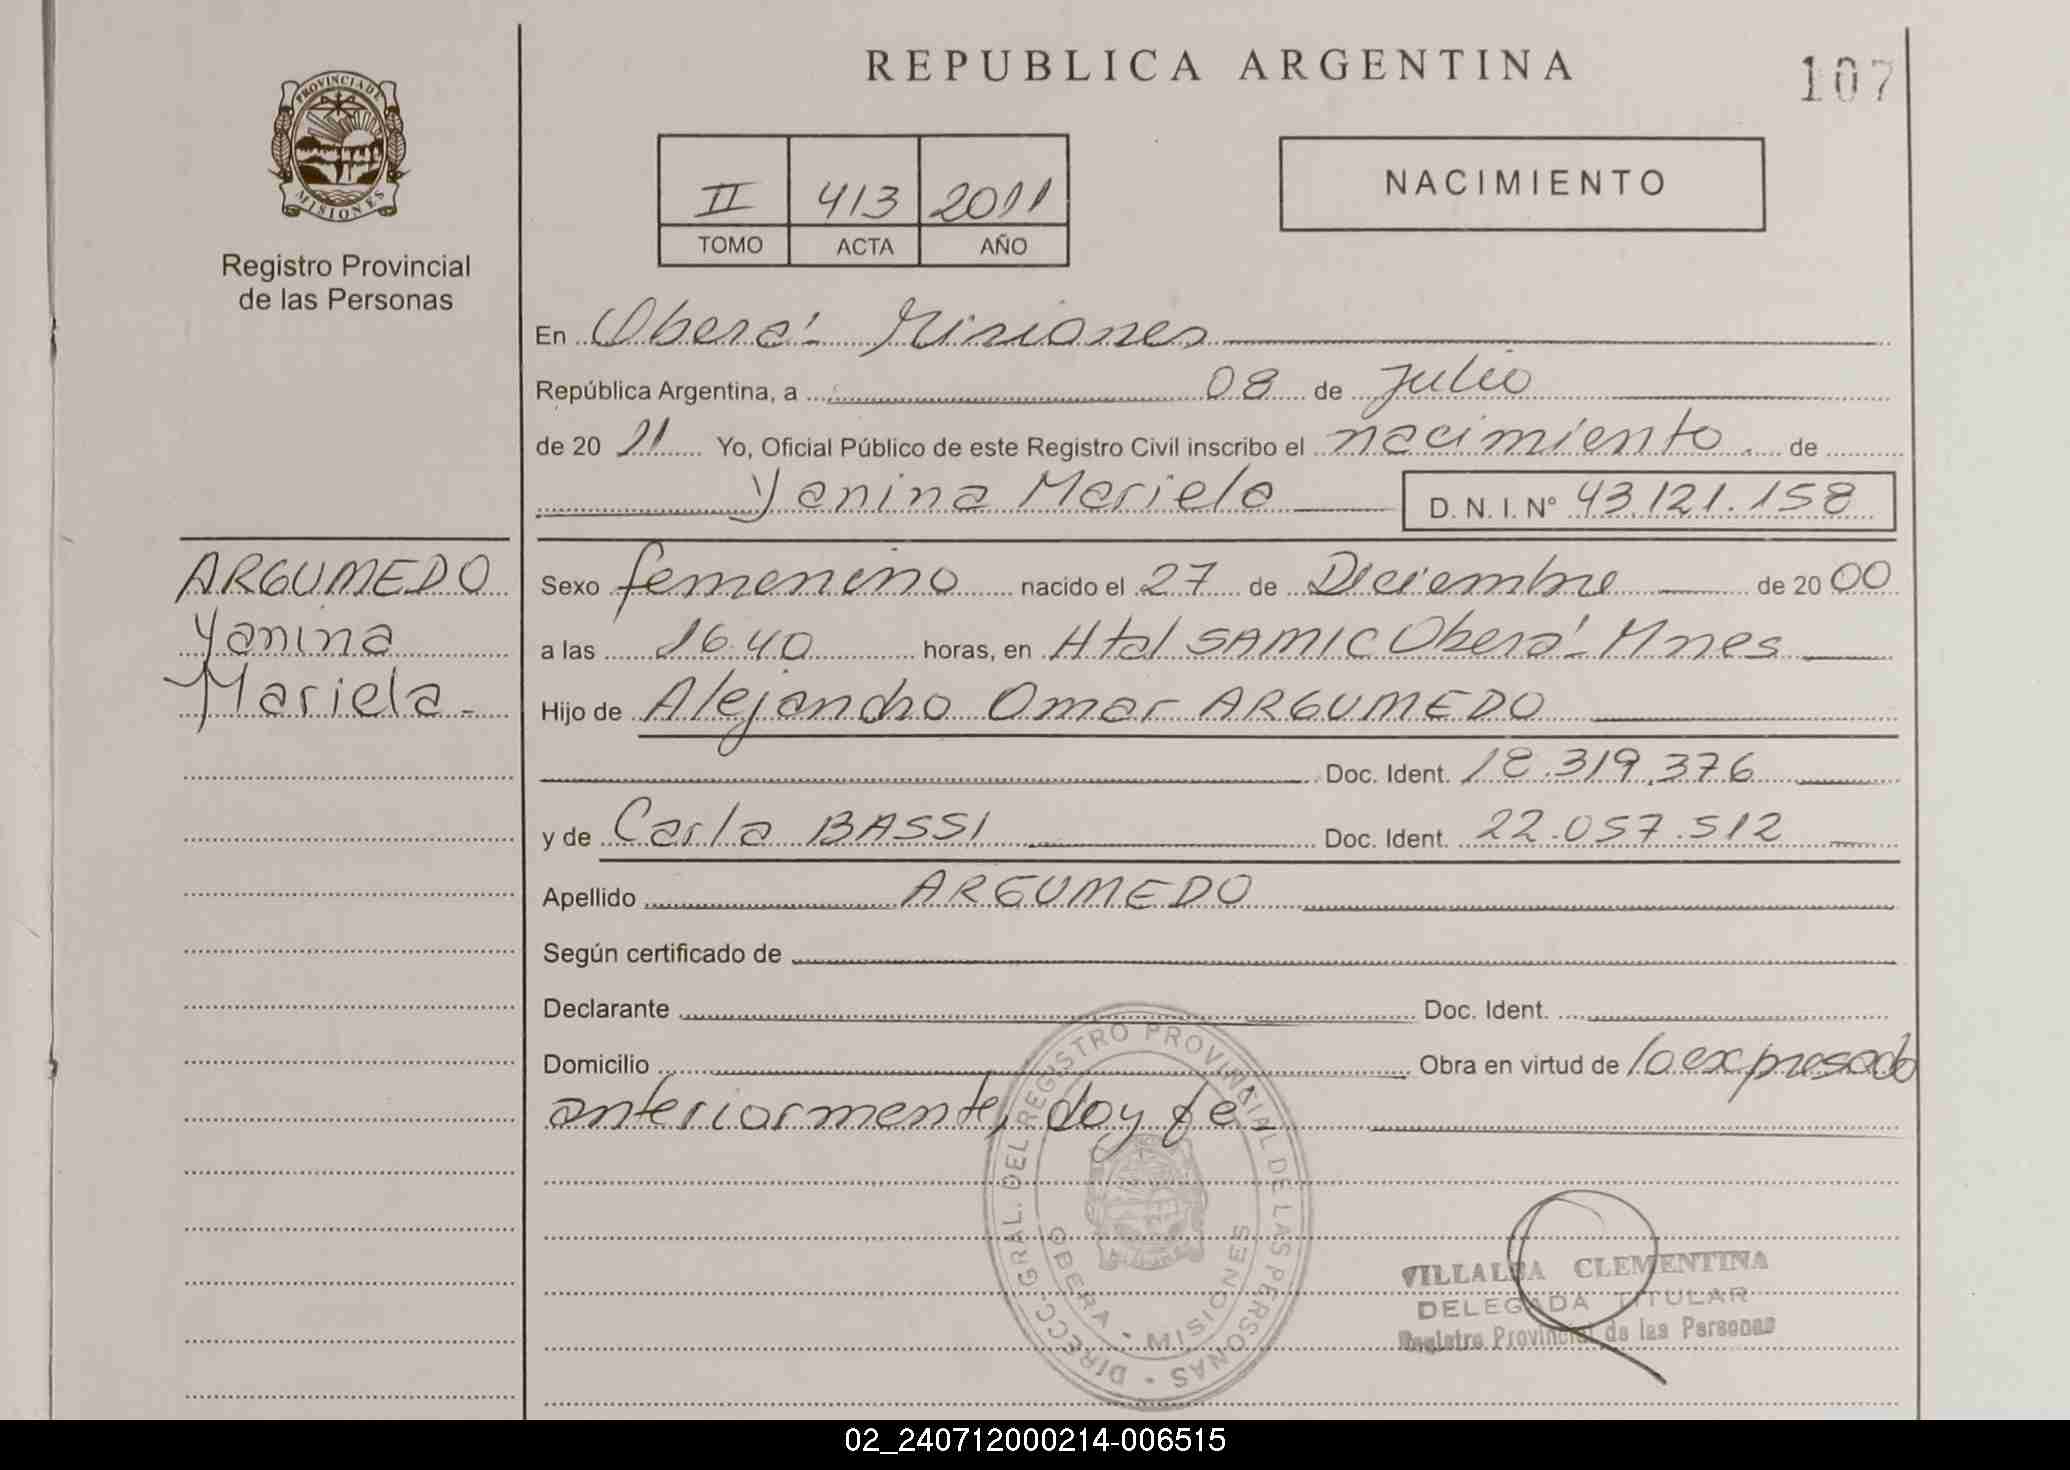 REPUBLICA ARGENTINA
107
PROVINCIA DE
MISIONES
Registro Provincial
de las Personas
II 413 2011
TOMO ACTA AÑO
NACIMIENTO
En Oberá - Misiones
República Argentina, a 08 de Julio
de 20 11 Yo, Oficial Público de este Registro Civil inscribo el nacimiento de
Yanina Mariela D. N. I. Nº 43.121.158
ARGUMEDO
Yanina
Mariela -
Sexo femenino nacido el 27 de Diciembre de 20 00
a las 16.40 horas, en Htal SAMIC Oberá - Mnes
Hijo de Alejandro Omar ARGUMEDO
Doc. Ident. 18.319.376
y de Carla BASSI Doc. Ident. 22.057.512
Apellido ARGUMEDO
Según certificado de
Declarante Doc. Ident.
Domicilio Obra en virtud de lo expresado
anteriormente, doy fe -
DIRECC. GRAL. DEL REGISTRO PROVINCIAL DE LAS PERSONAS
OBERA - MISIONES
VILLALBA CLEMENTINA
DELEGADA TITULAR
Registro Provincial de las Personas
02_240712000214-006515